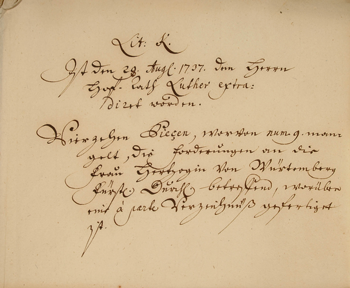 Lit: K.
Ist den 28 Aug. 1737. dem Herrn
Hof-Rath Luther extra-
diret worden.
Vierzehen Piecen, worvon num. 9. man-
gelt, die Forderungen an die
Frau Hertzogin von Würtemberg
Fürstl. Durchl. betreffend, worüber
ein à parte Verzeichnuß gefertiget
ist.